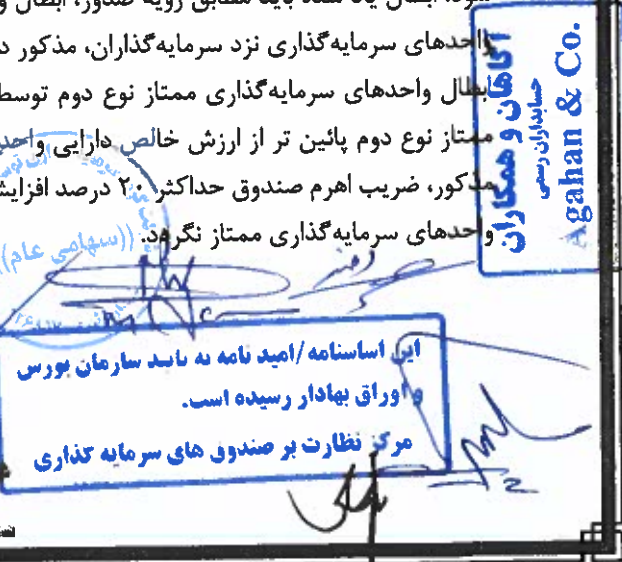 باید مطابق رویه صدور، ابطال و
واحدهای سرمایه‌گذاری نزد سرمایه‌گذاران، مذکور د
ابطال واحدهای سرمایه‌گذاری ممتاز نوع دوم توسط
ممتاز نوع دوم پائین تر از ارزش خالص دارایی واحد
مذکور، ضریب اهرم صندوق حداکثر ۲۰ درصد افزایش
واحدهای سرمایه‌گذاری ممتاز نگردد.
آگاهان و همکاران
حسابداران رسمی
Agahan & Co.
((سهامی عام))
این اساسنامه /امید نامه به تایید سازمان بورس
و اوراق بهادار رسیده است.
مرکز نظارت بر صندوق های سرمایه گذاری